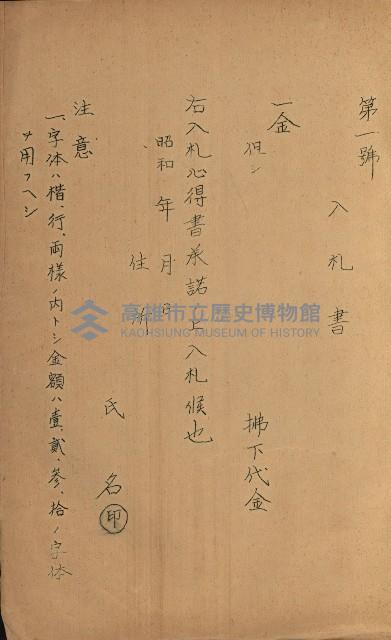 第一號
入札書
一金
但シ
拂下代金
右入札心得書承諾ノ上入札候也
昭和 年 月 日
住所
氏名 印
注意
一、字体ハ楷、行、両様ノ内トシ金額ハ壹、貳、参、拾ノ字体
ヲ用フヘシ
高雄市立歷史博物館
KAOHSIUNG MUSEUM OF HISTORY